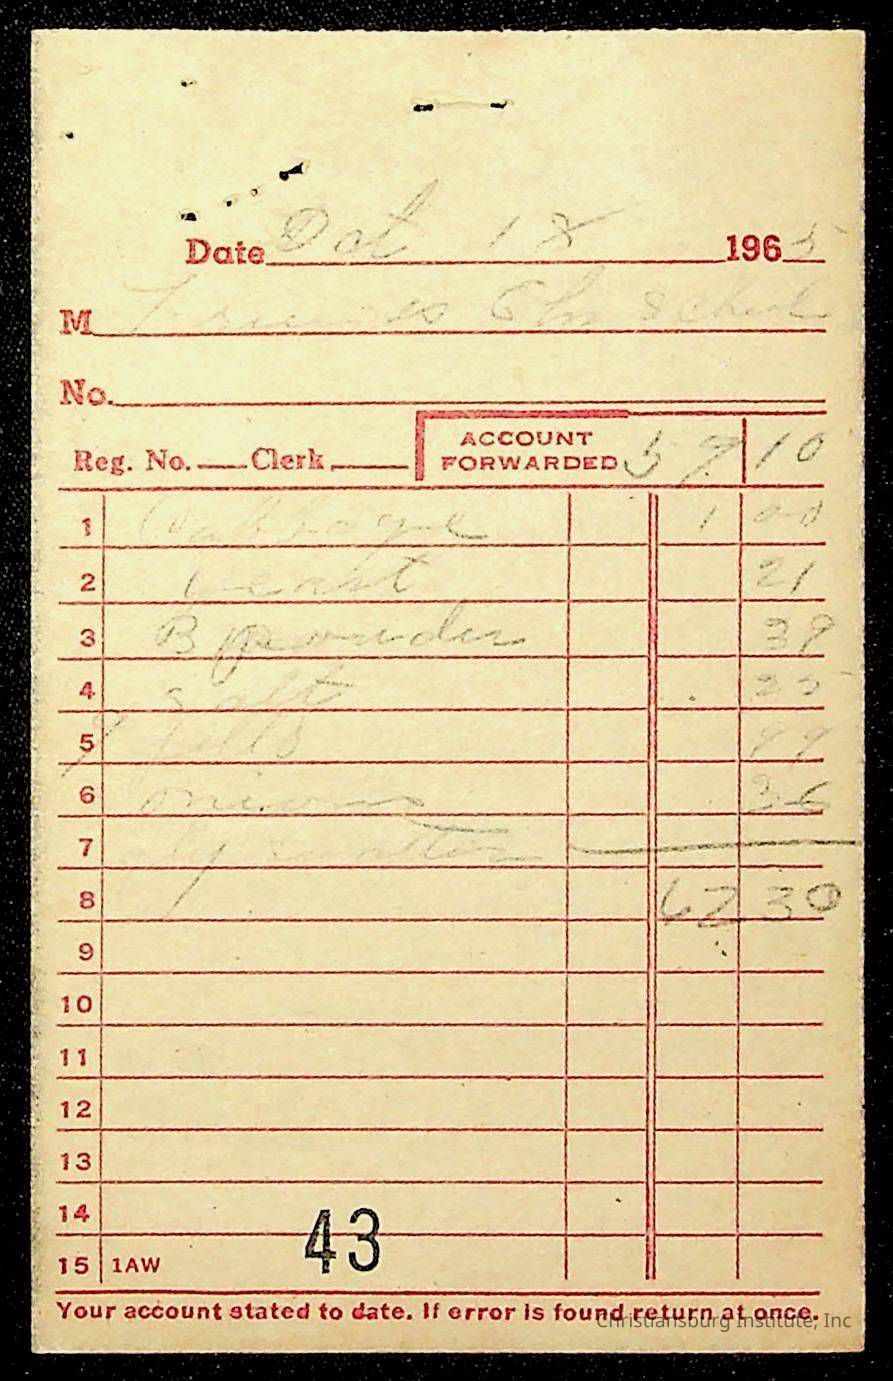 Date Oct 18 1965
M Friends Elm School
No.
Reg. No. Clerk ACCOUNT FORWARDED 59 10
1 Cabbage 1 00
2 yeast 21
3 B powder 39
4 Salt 25
5 99
6 onions 36
7
8 62 30
9
10
11
12
13
14
15 1AW
43
Your account stated to date. If error is found return at once.
Christiansburg Institute, Inc